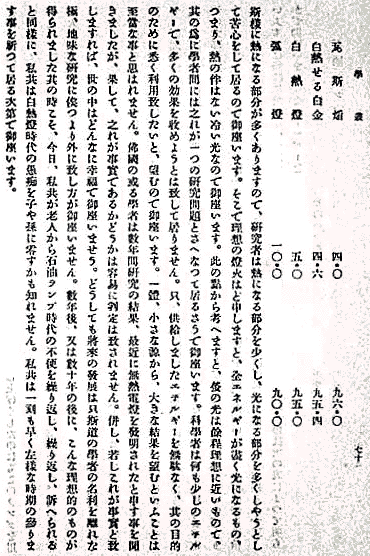 學叢
七十
瓦斯焔 四・〇 九六・〇
白熱せる白金 四・六 九五・四
白熱燈 五・〇 九五・〇
弧燈 一〇・〇 九〇・〇
斯樣に熱になる部分が多くありますので、研究者は熱になる部分を少くし、光になる部分を多くしやうとし
て苦心をして居るので御座います。そこで理想の燈火はと申しますと、全エネルギーが盡く光になるもの、
つまり、熱の伴はない冷い光なので御座います。此の點から考へますと、螢の光は餘程理想に近いもので、
其の爲に學者間には之れが一つの研究問題とさへなつて居るさうで御座います。科學者は何も少しのエネル
ギーで、多くの効果を收めようとは致して居りません。只、供給しましたエネルギーを無駄なく、其の目的
のために悉く利用致したいと、望むので御座います。一體、小さな源から、大きな結果を望むといふことは
至當な事と思はれません。佛國の或る學者は數年間研究の結果、最近に無熱電燈を發明されたと申す事を聞
きましたが、果して、之れが事實であるかどうかは容易に判定は致されません。併し、若しこれが事實と致
しますれば、世の中はどんなに幸福で御座いませう。どうしても將來の發展は只斯道の學者の名利を離れた
極、地味な研究に俟つより外に致し方が御座いません。數年後、又は數十年の後に、こんな理想的のものが
得られました其の時こそ、今日、私共が老人から石油ランプ時代の不便を繰り返し、繰り返し、訴へられる
と同樣に、私共は白熱燈時代の愚痴を子や孫に零すかも知れません。私共は一刻も早く左樣な時期の參りま
す事を祈つて居る次第で御座います。